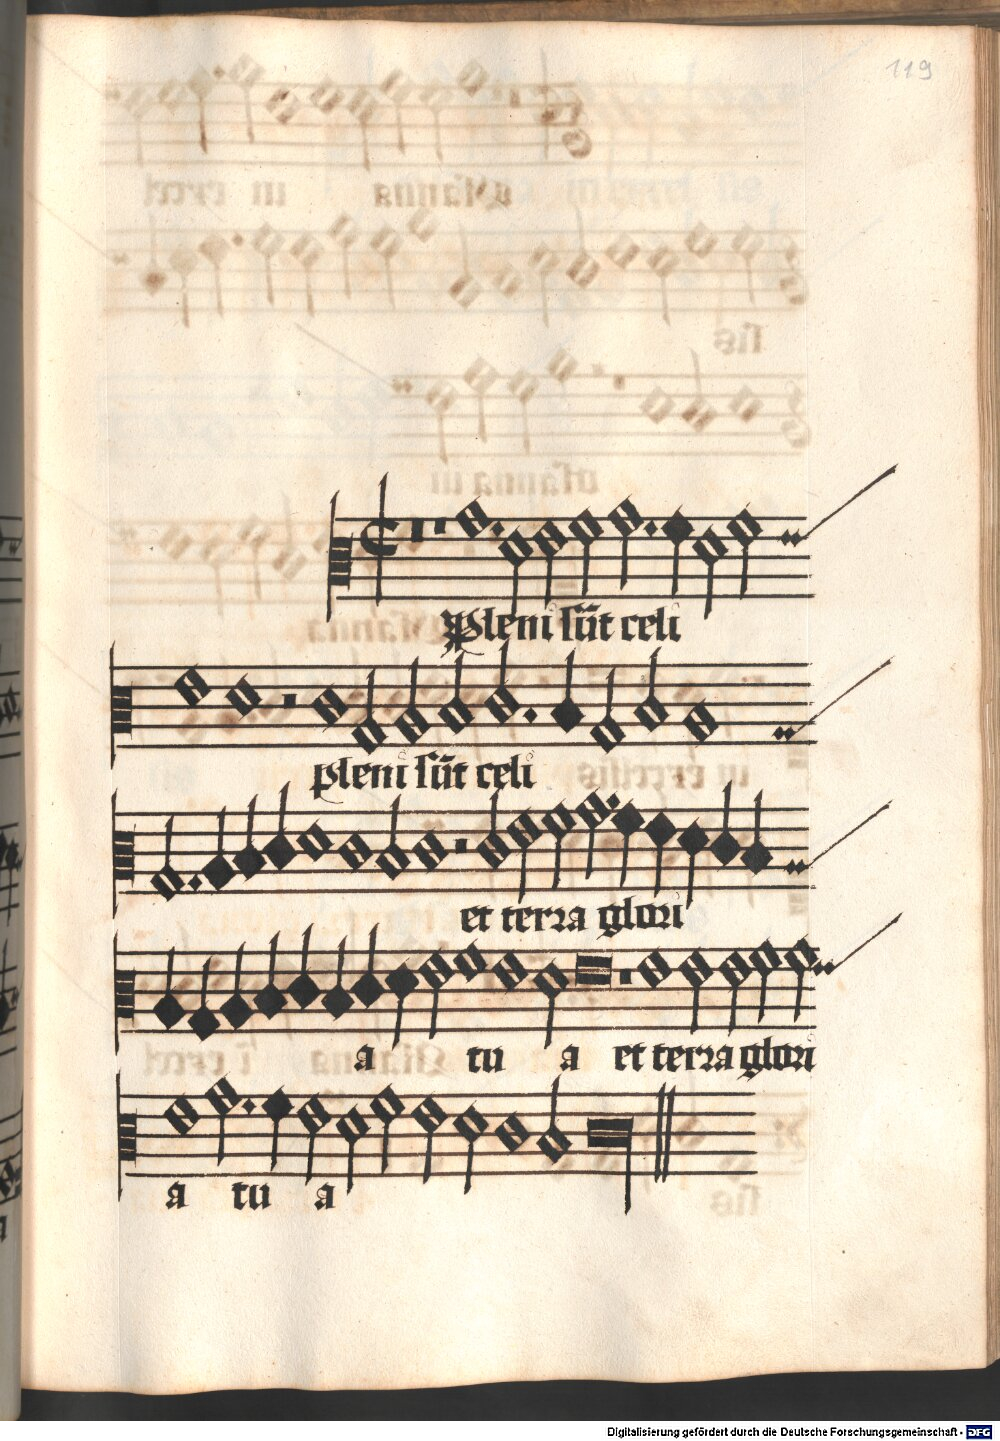 119
Pleni sūt celi
pleni sūt celi
et terra glori
a tu a et terra glori
a tu a
Digitalisierung gefördert durch die Deutsche Forschungsgemeinschaft - DFG